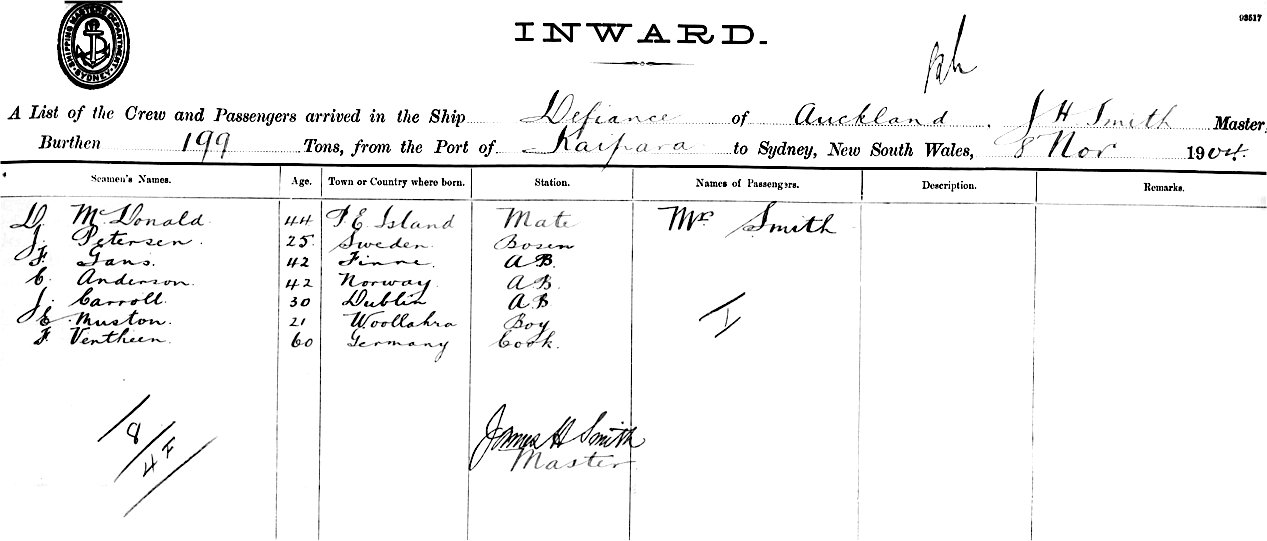 SHIPPING MASTERS DEPARTMENT. SYDNEY
93517
INWARD.
A List of the Crew and Passengers arrived in the Ship Defiance of Auckland. J H Smith Master,
Burthen 199 Tons, from the Port of Kaipara to Sydney, New South Wales, 8 Nov 1904.
Seamen's Names. Age. Town or Country where born. Station. Names of Passengers. Description. Remarks.
D. McDonald 44 P.E. Island Mate Mrs Smith
J. Petersen. 25 Sweden. Bosen
F. Gans. 42 Finne. A.B.
C. Anderson. 42 Norway. A.B.
J. Carroll. 30 Dublin A.B
E. Muston. 21 Woollahra Boy
F. Ventheen. 60 Germany Cook.
1
8
4 F
James H Smith
Master